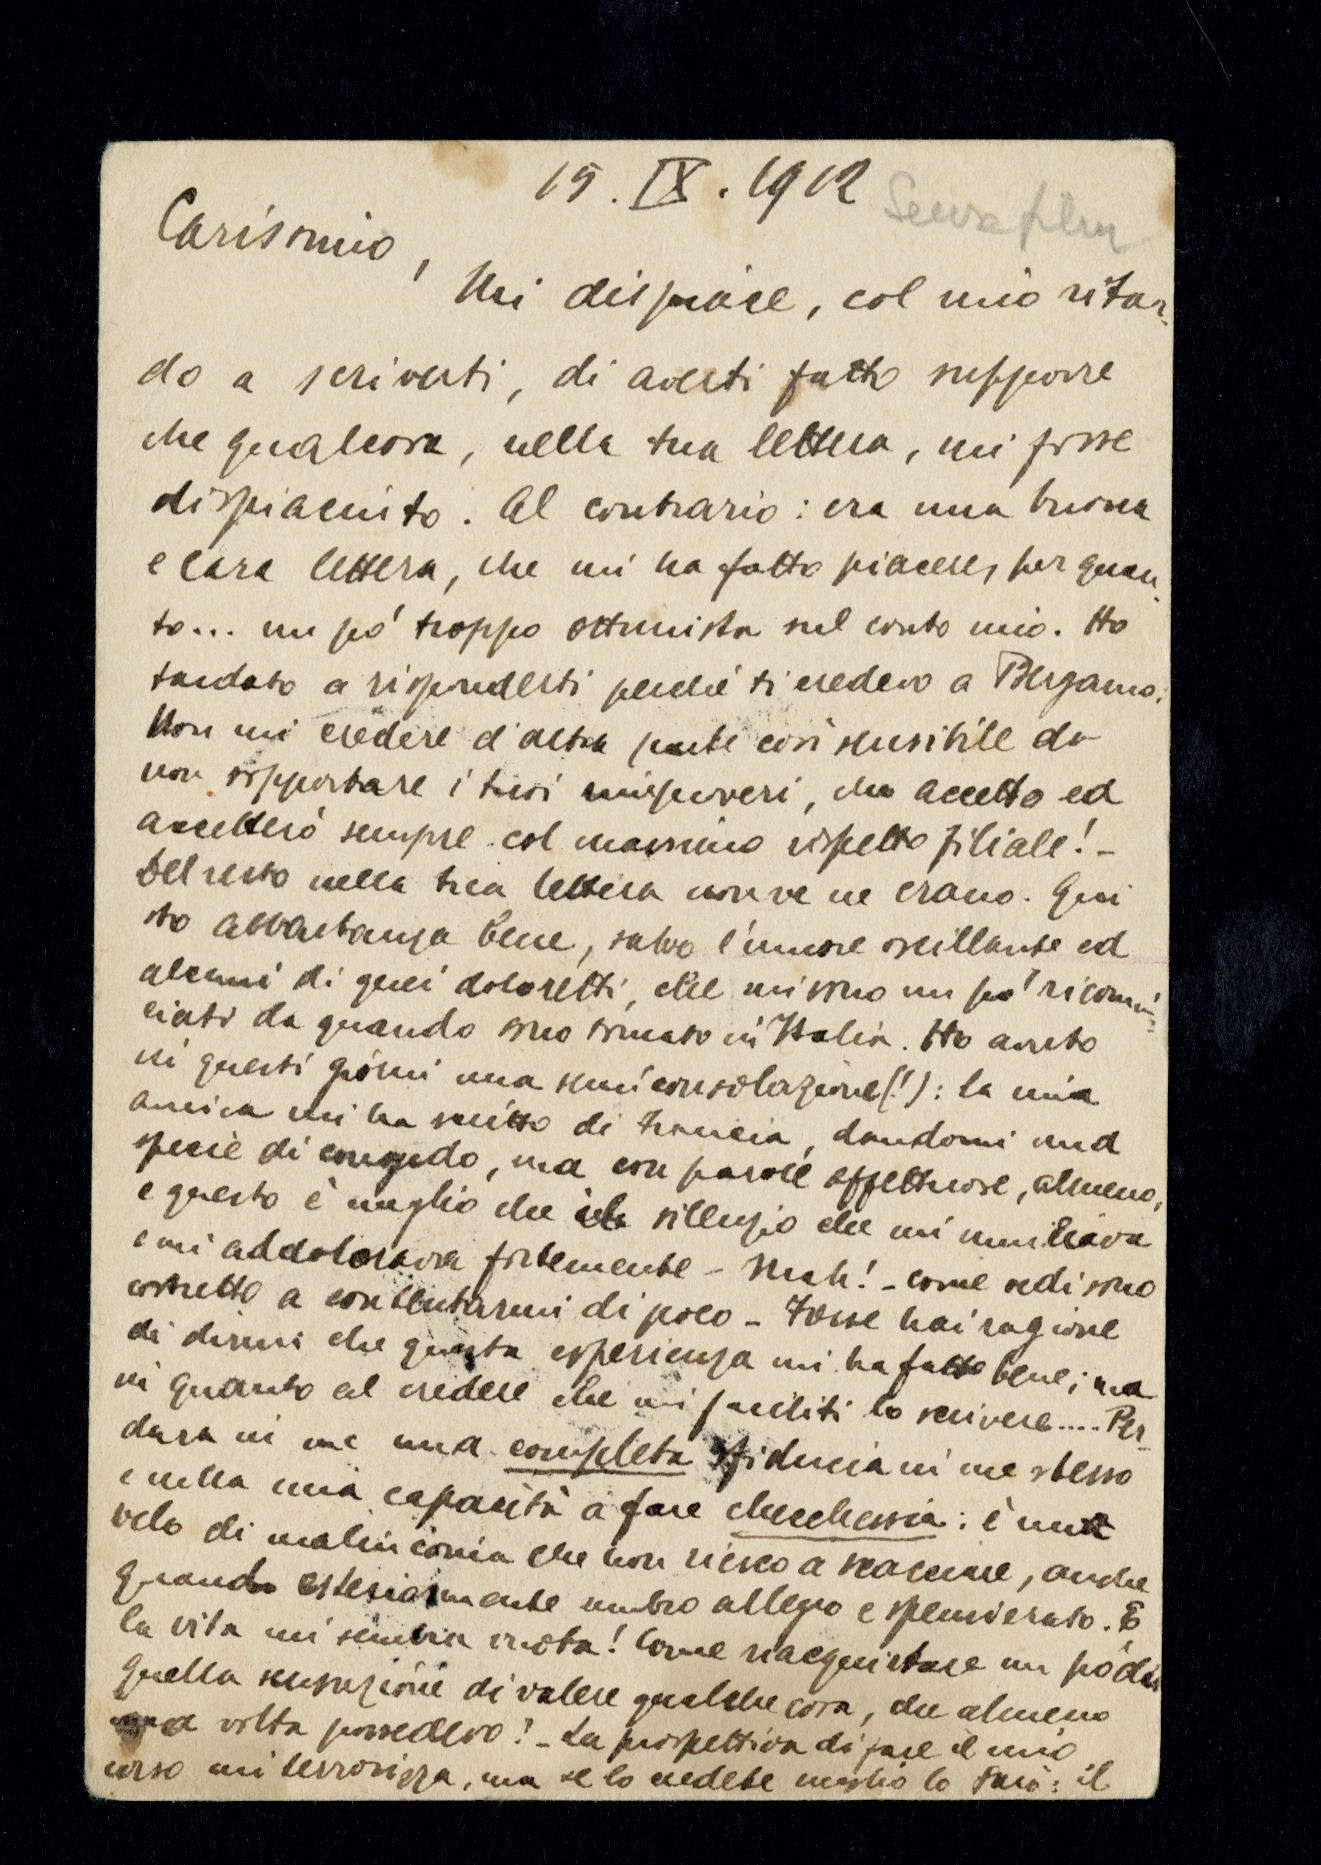 15. IX. 1912
Carissimo,
Mi dispiace, col mio ritar-
do a scriverti, di averti fatto supporre
che qualcosa, nella tua lettera, mi fosse
dispiaciuto. Al contrario: era una buona
e cara lettera, che mi ha fatto piacere, per quan-
to... un po' troppo ottimista sul conto mio. Ho
tardato a risponderti perché ti credevo a Bergamo.
Non mi credere d'altra parte così sensibile da
non sopportare i tuoi rimproveri, che accetto ed
accetterò sempre col massimo rispetto filiale! -
Del resto nella tua lettera non ve ne erano. Qui
sto abbastanza bene, salvo l'umore oscillante ed
alcuni di quei doloretti, che mi sono un po' ricomin-
ciati da quando sono tornato in Italia. Ho avuto
in questi giorni una semiconsolazione(!): la mia
amica mi ha scritto di Francia, dandomi una
specie di congedo, ma con parole affettuose, almeno,
e questo è meglio che il silenzio che mi umiliava
e mi addolorava fortemente - Mah! - come vedi sono
costretto a contentarmi di poco - Forse hai ragione
di dirmi che questa esperienza mi ha fatto bene; ma
in quanto al credere che mi faciliti lo scrivere.... Per-
dura in me una completa sfiducia in me stesso
e nella mia capacità a fare checchessia: è un
velo di malinconia che non riesco a scacciare, anche
quando esteriormente sembro allegro e spensierato. E
la vita mi sembra vuota! Come riacquistare un po' di
quella sensazione di valere qualche cosa, che almeno
una volta possedevo? - La prospettiva di fare il mio
corso mi terrorizza, ma se lo credete meglio lo farò: il